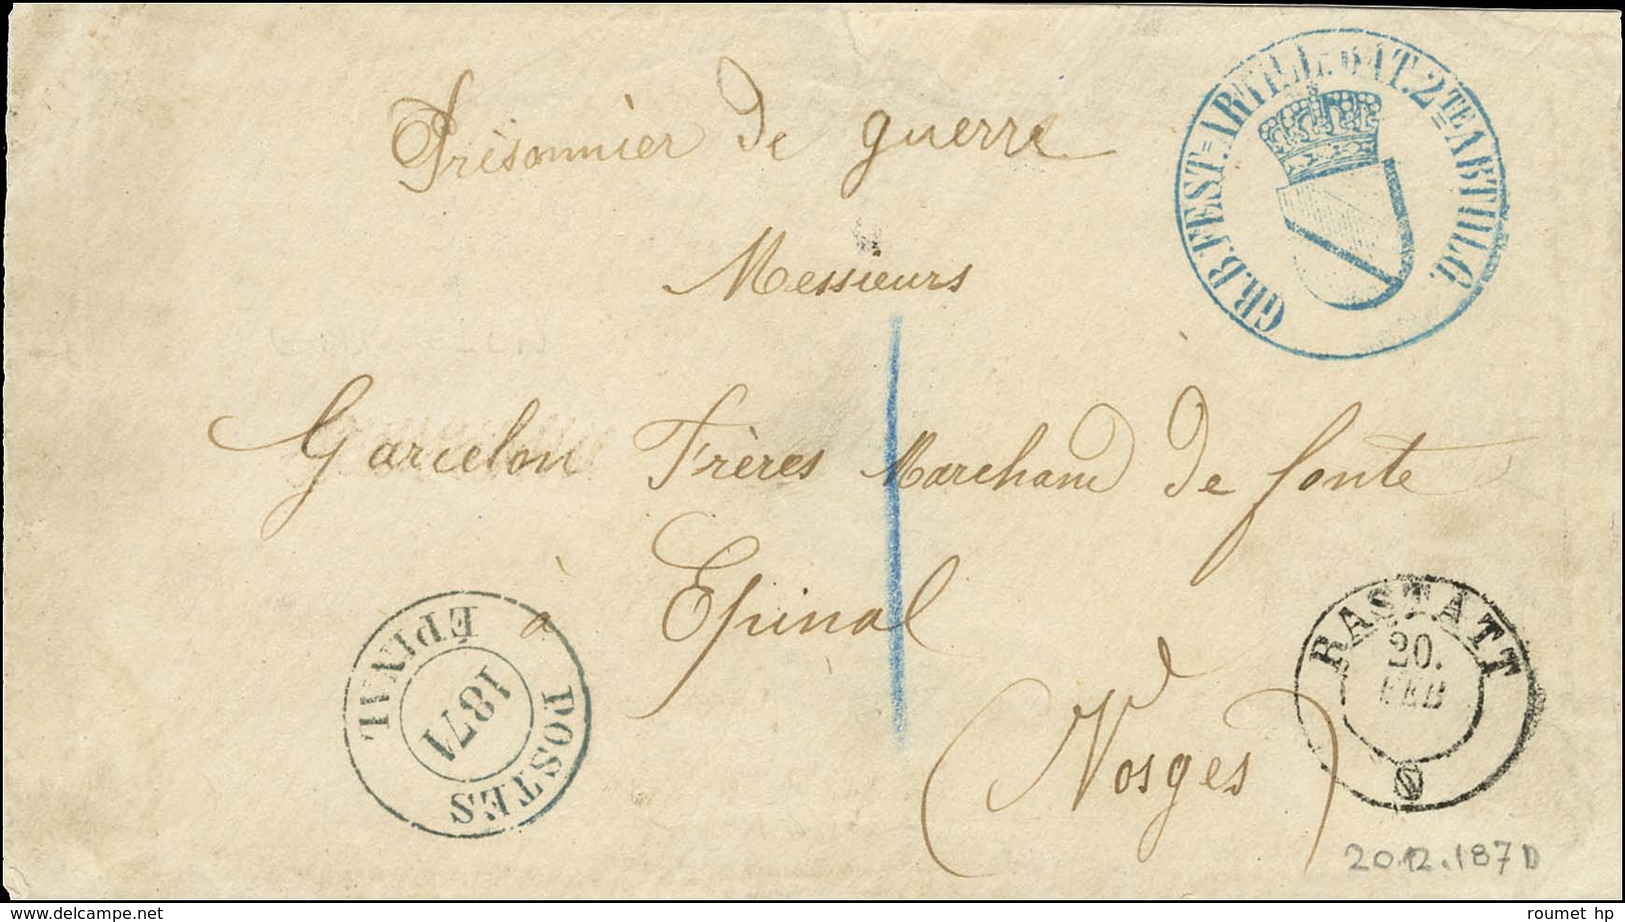 Prisonnier de guerre
GR.B.FEST=ARTILL:BAT.2TE ABTHLG.
Messieurs
Garcelon Frères Marchand de fonte
à Epinal
(Vosges)
POSTES EPINAL
1871
RASTATT
20.
FEB
20.12.187
www.delcampe.net
roumet hp